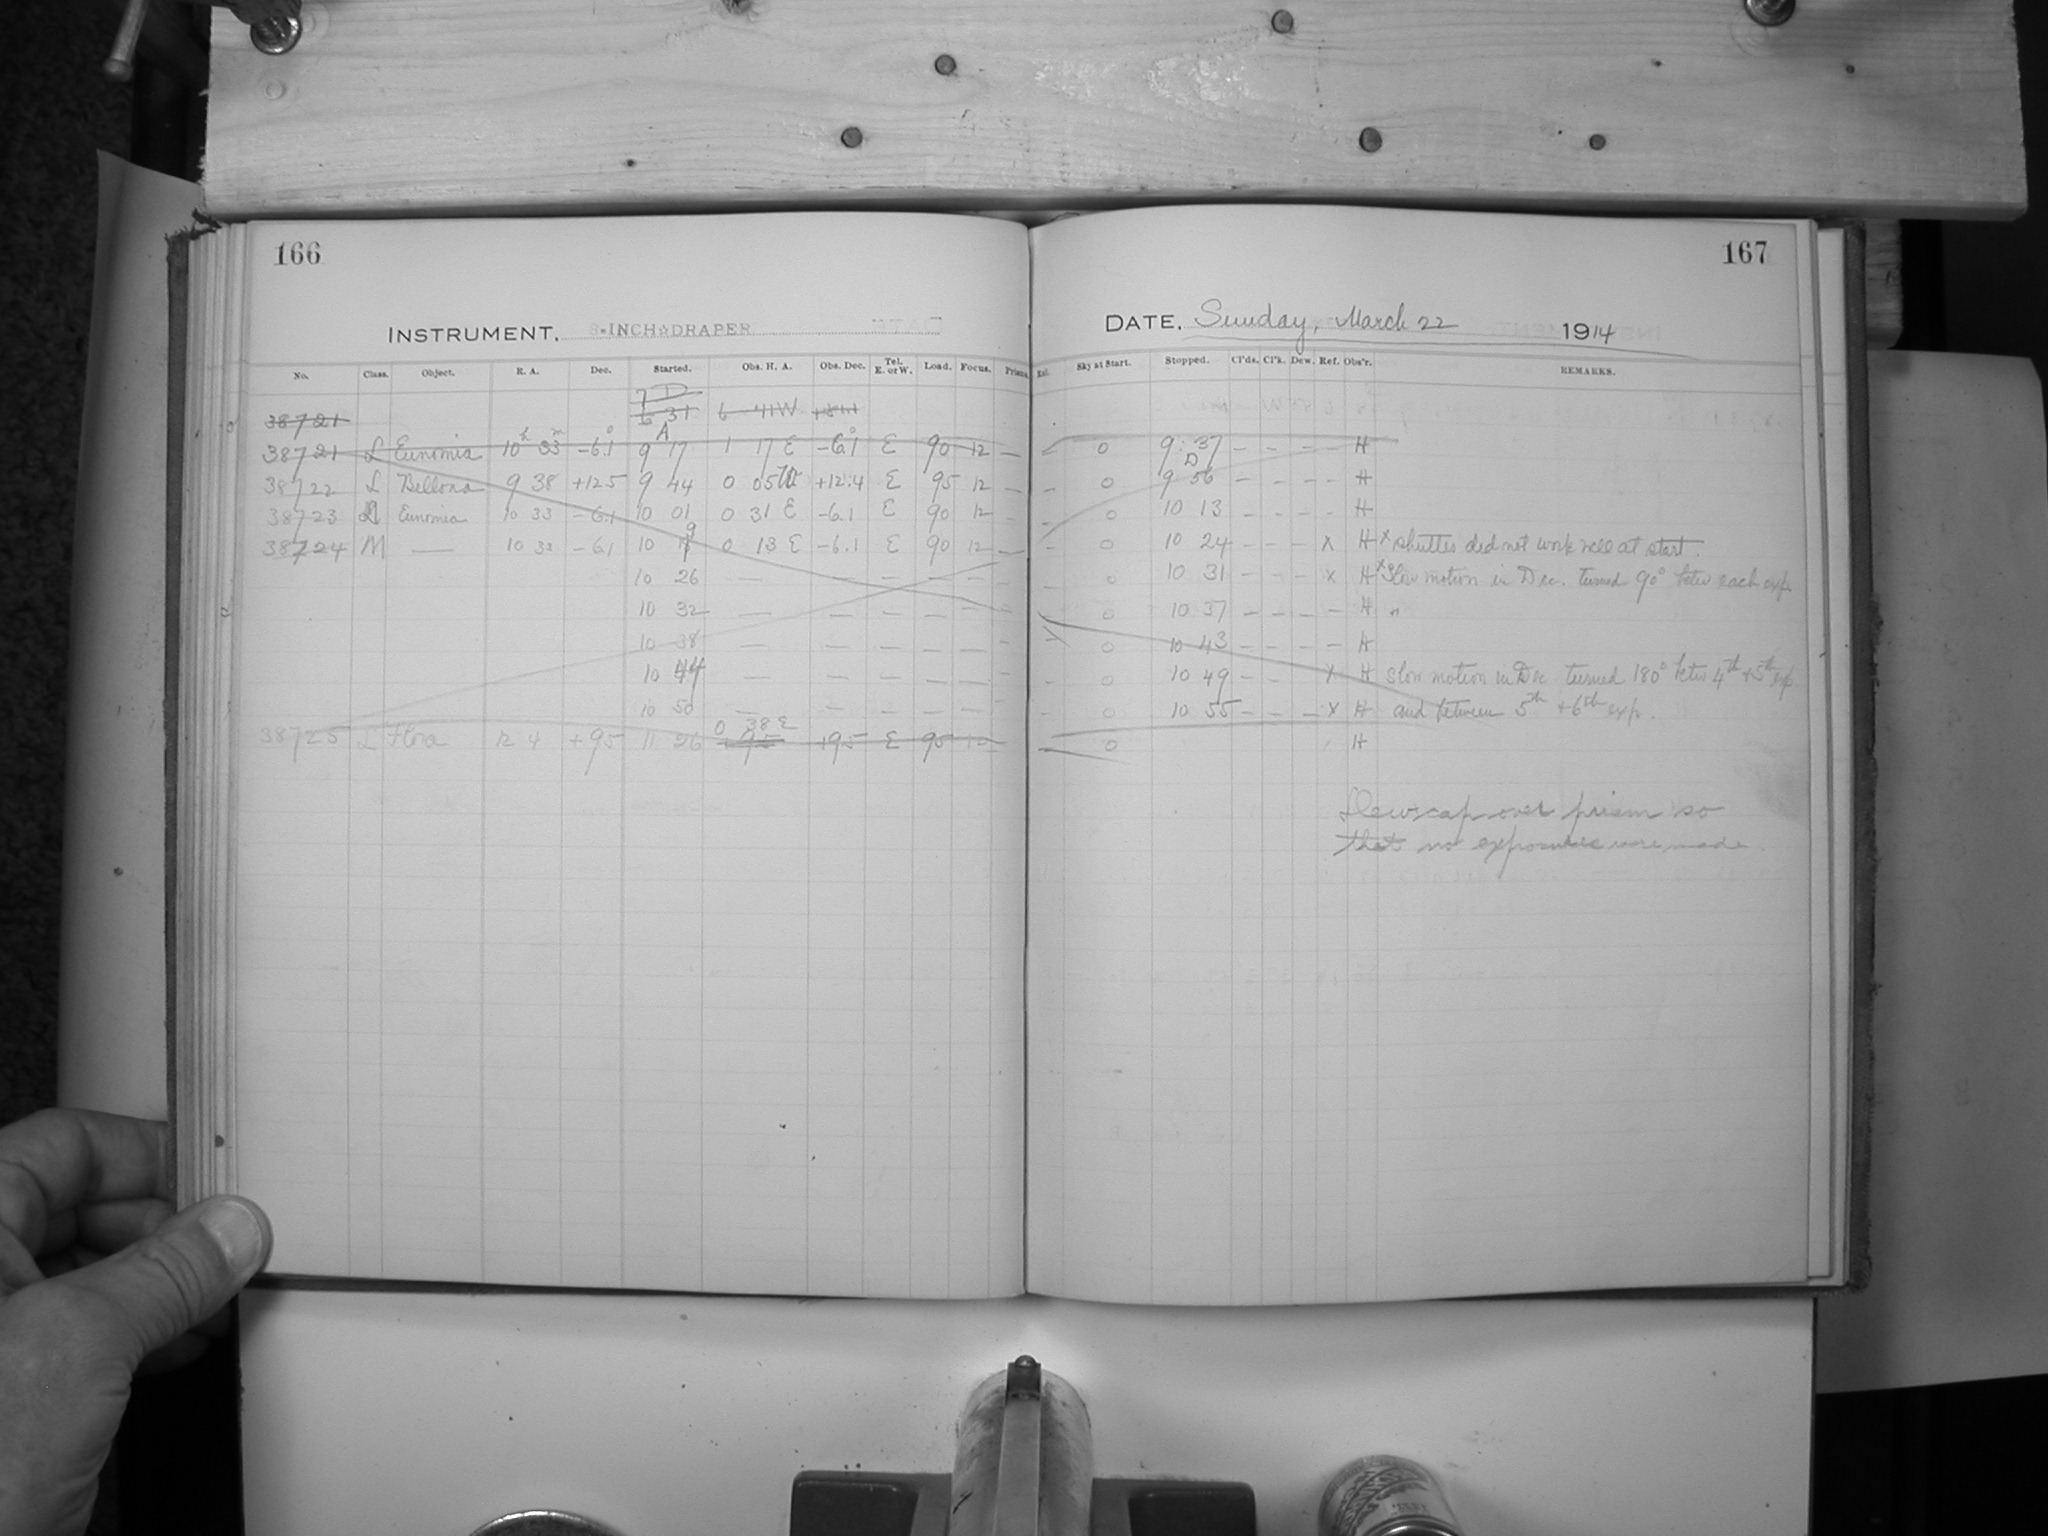 166
167
INSTRUMENT. 8-INCH☆DRAPER
DATE. Sunday, March 22 1914
No. Class. Object. R. A. Dec. Started. Obs. H. A. Obs. Dec. Tel. E. or W. Load. Focus. Prism. Sky at Start. Stopped. Cl'ds. Cl'k. Dew. Ref. Obs'r. REMARKS.
7 D
38721 6 31 6 41 W
A
38721 L Eunomia 10h 33m -6.1° 9 17 1 17 E -6.1° E 90 12 — — 0 9:37 — — — — H
D
38722 L Bellona 9 38 +12.5 9 44 0 05 W +12.4 E 95 12 — — 0 9 56 — — — — H
38723 L Eunomia 10 33 -6.1 10 01 0 31 E -6.1 E 90 12 — — 0 10 13 — — — — H
38724 M — 10 33 -6.1 10 19 0 13 E -6.1 E 90 12 — — 0 10 24 — — — x H x shutter did not work well at start.
10 26 — — — — — — — 0 10 31 — — — x H x Slow motion in Dec. turned 90° betw each exp.
10 32 — — — — — — 0 10 37 — — — — H "
10 38 — — — — — — 0 10 43 — — — — H
10 44 — — — — — — — 0 10 49 — — — x H Slow motion in Dec turned 180° betw 4th + 5th exp.
10 50 — — — — — — — 0 10 55 — — — x H and between 5th + 6th exp.
0 38 E
38725 L Flora 12 4 +9.5 11 26 +9.5 +9.5 E 95 12 — — 0 H
Dewcap over prism so
that no exposures were made.